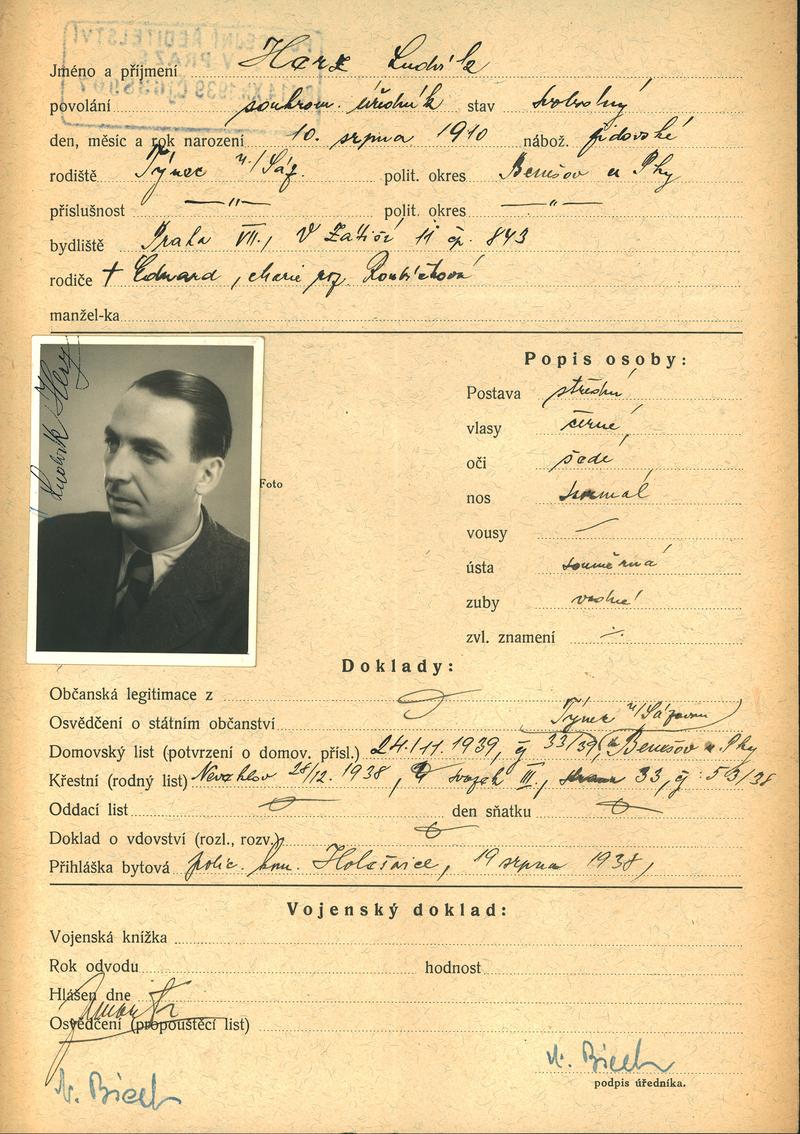 Jméno a příjmení Herz Ludvík
povolání soukrom. úředník stav svobodný
den, měsíc a rok narození 10. srpna 1910 nábož. židovské
rodiště Týnec n./Sáz. polit. okres Benešov u Phy
příslušnost —"— polit. okres —"—
bydliště Praha VII., V Zátiší 11 čp. 843
rodiče † Edvard, Marie roz. Roubíčková
manžel-ka
Ludvík Herz
Foto
Popis osoby:
Postava střední
vlasy černé
oči šedé
nos normál
vousy —
ústa souměrná
zuby vadné
zvl. znamení ·/·
Doklady:
Občanská legitimace z
Osvědčení o státním občanství Týnec n/Sázavou
Domovský list (potvrzení o domov. přísl.) 24./11. 1939, čj 33/39, Benešov u Phy
Křestní (rodný list) 28/12. 1938, svazek III., 33, čj. 53/38
Oddací list den sňatku
Doklad o vdovství (rozl., rozv.)
Přihláška bytová polic. kom. Holešovice, 19 srpna 1938,
Vojenský doklad:
Vojenská knížka
Rok odvodu hodnost
Hlášen dne
Osvědčení (propouštěcí list)
podpis úředníka.